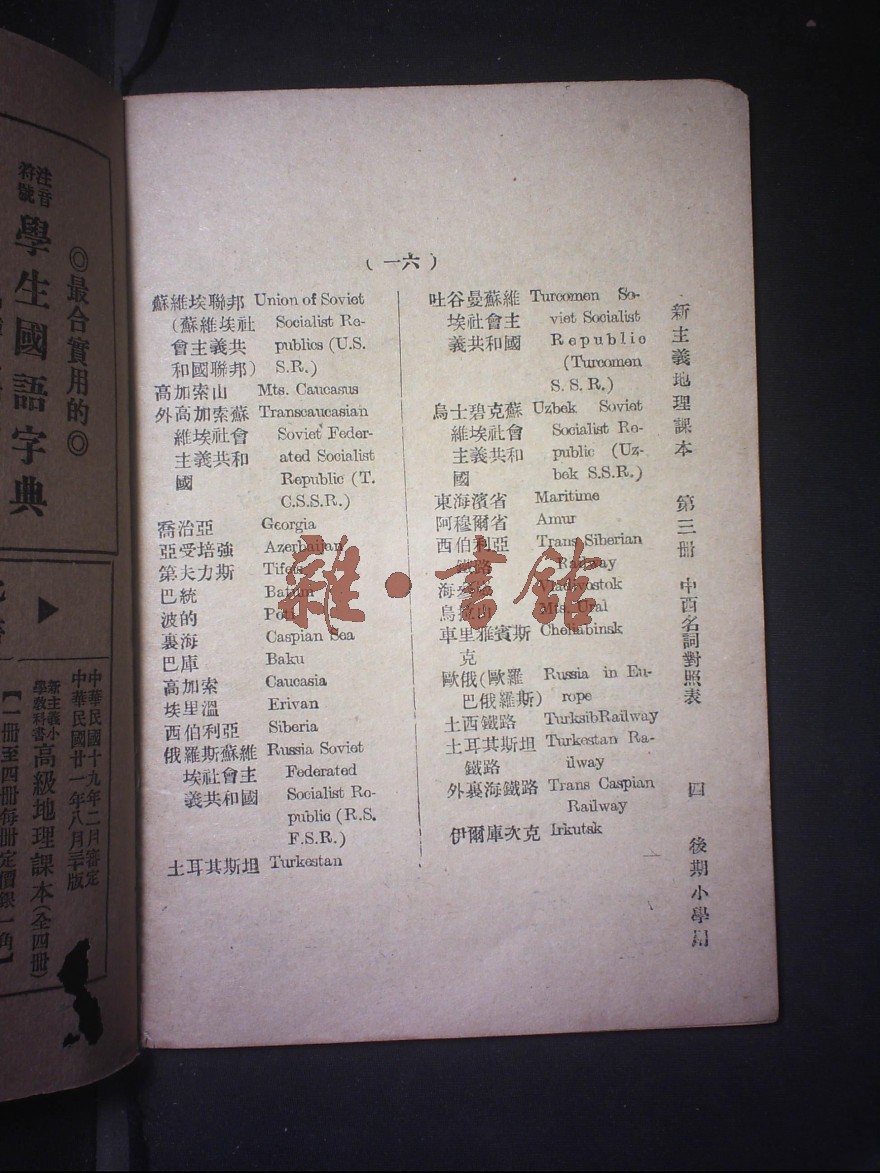 注音符號
學生國語字典
◎最合實用的◎
中華民國十九年二月審定
中華民國廿一年八月三十版
新主義小學教科書
高級地理課本(全四冊)
【一冊至四冊每冊定價銀一角】
(一六)
蘇維埃聯邦 Union of Soviet
(蘇維埃社 Socialist Re-
會主義共 publics (U.S.
和國聯邦) S.R.)
高加索山 Mts. Caucasus
外高加索蘇 Transcaucasian
維埃社會 Soviet Feder-
主義共和 ated Socialist
國 Republic (T.
C.S.S.R.)
喬治亞 Georgia
亞受培強 Azerbaijan
第夫力斯 Tifets
巴統 Batum
波的 Poti
裏海 Caspian Sea
巴庫 Baku
高加索 Caucasia
埃里溫 Erivan
西伯利亞 Siberia
俄羅斯蘇維 Russia Soviet
埃社會主 Federated
義共和國 Socialist Re-
public (R.S.
F.S.R.)
土耳其斯坦 Turkestan
吐谷曼蘇維 Turcomen So-
埃社會主 viet Socialist
義共和國 Republic
(Turcomen
S. S. R.)
烏士碧克蘇 Uzbek Soviet
維埃社會 Socialist Re-
主義共和 public (Uz-
國 bek S.S.R.)
東海濱省 Maritime
阿穆爾省 Amur
西伯利亞 Trans Siberian
鐵路 Railway
海參崴 Vladivostok
烏拉山 Mts. Ural
車里雅賓斯 Cheliabinsk
克
歐俄(歐羅 Russia in Eu-
巴俄羅斯) rope
土西鐵路 TurksibRailway
土耳其斯坦 Turkestan Ra-
鐵路 ilway
外裏海鐵路 Trans Caspian
Railway
伊爾庫次克 Irkutsk
新主義地理課本 第三冊 中西名詞對照表 四 後期小學用
雜·書館